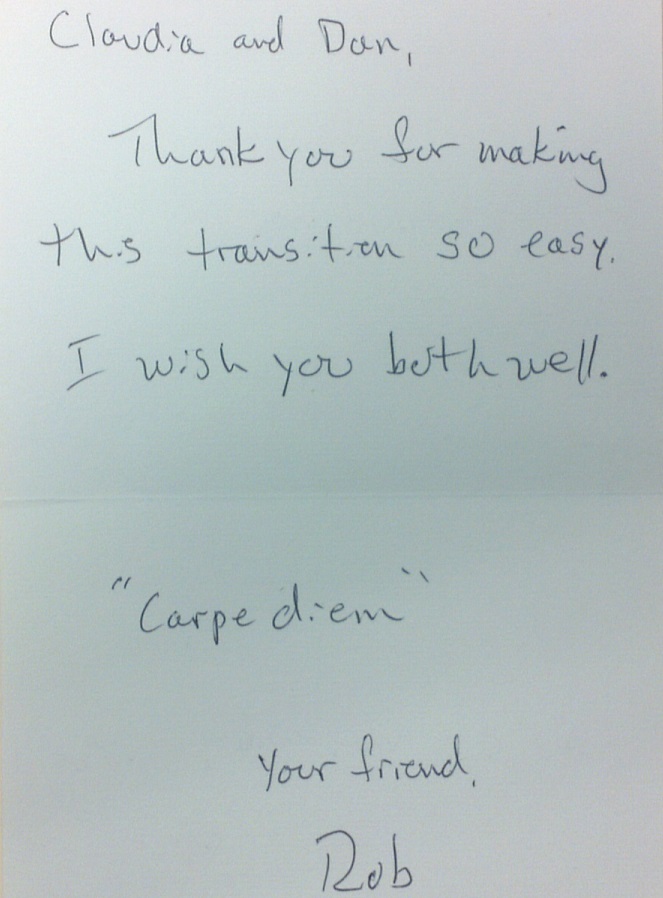 Claudia and Dan,
Thank you for making
this transition so easy.
I wish you both well.
"Carpe diem"
Your friend,
Rob